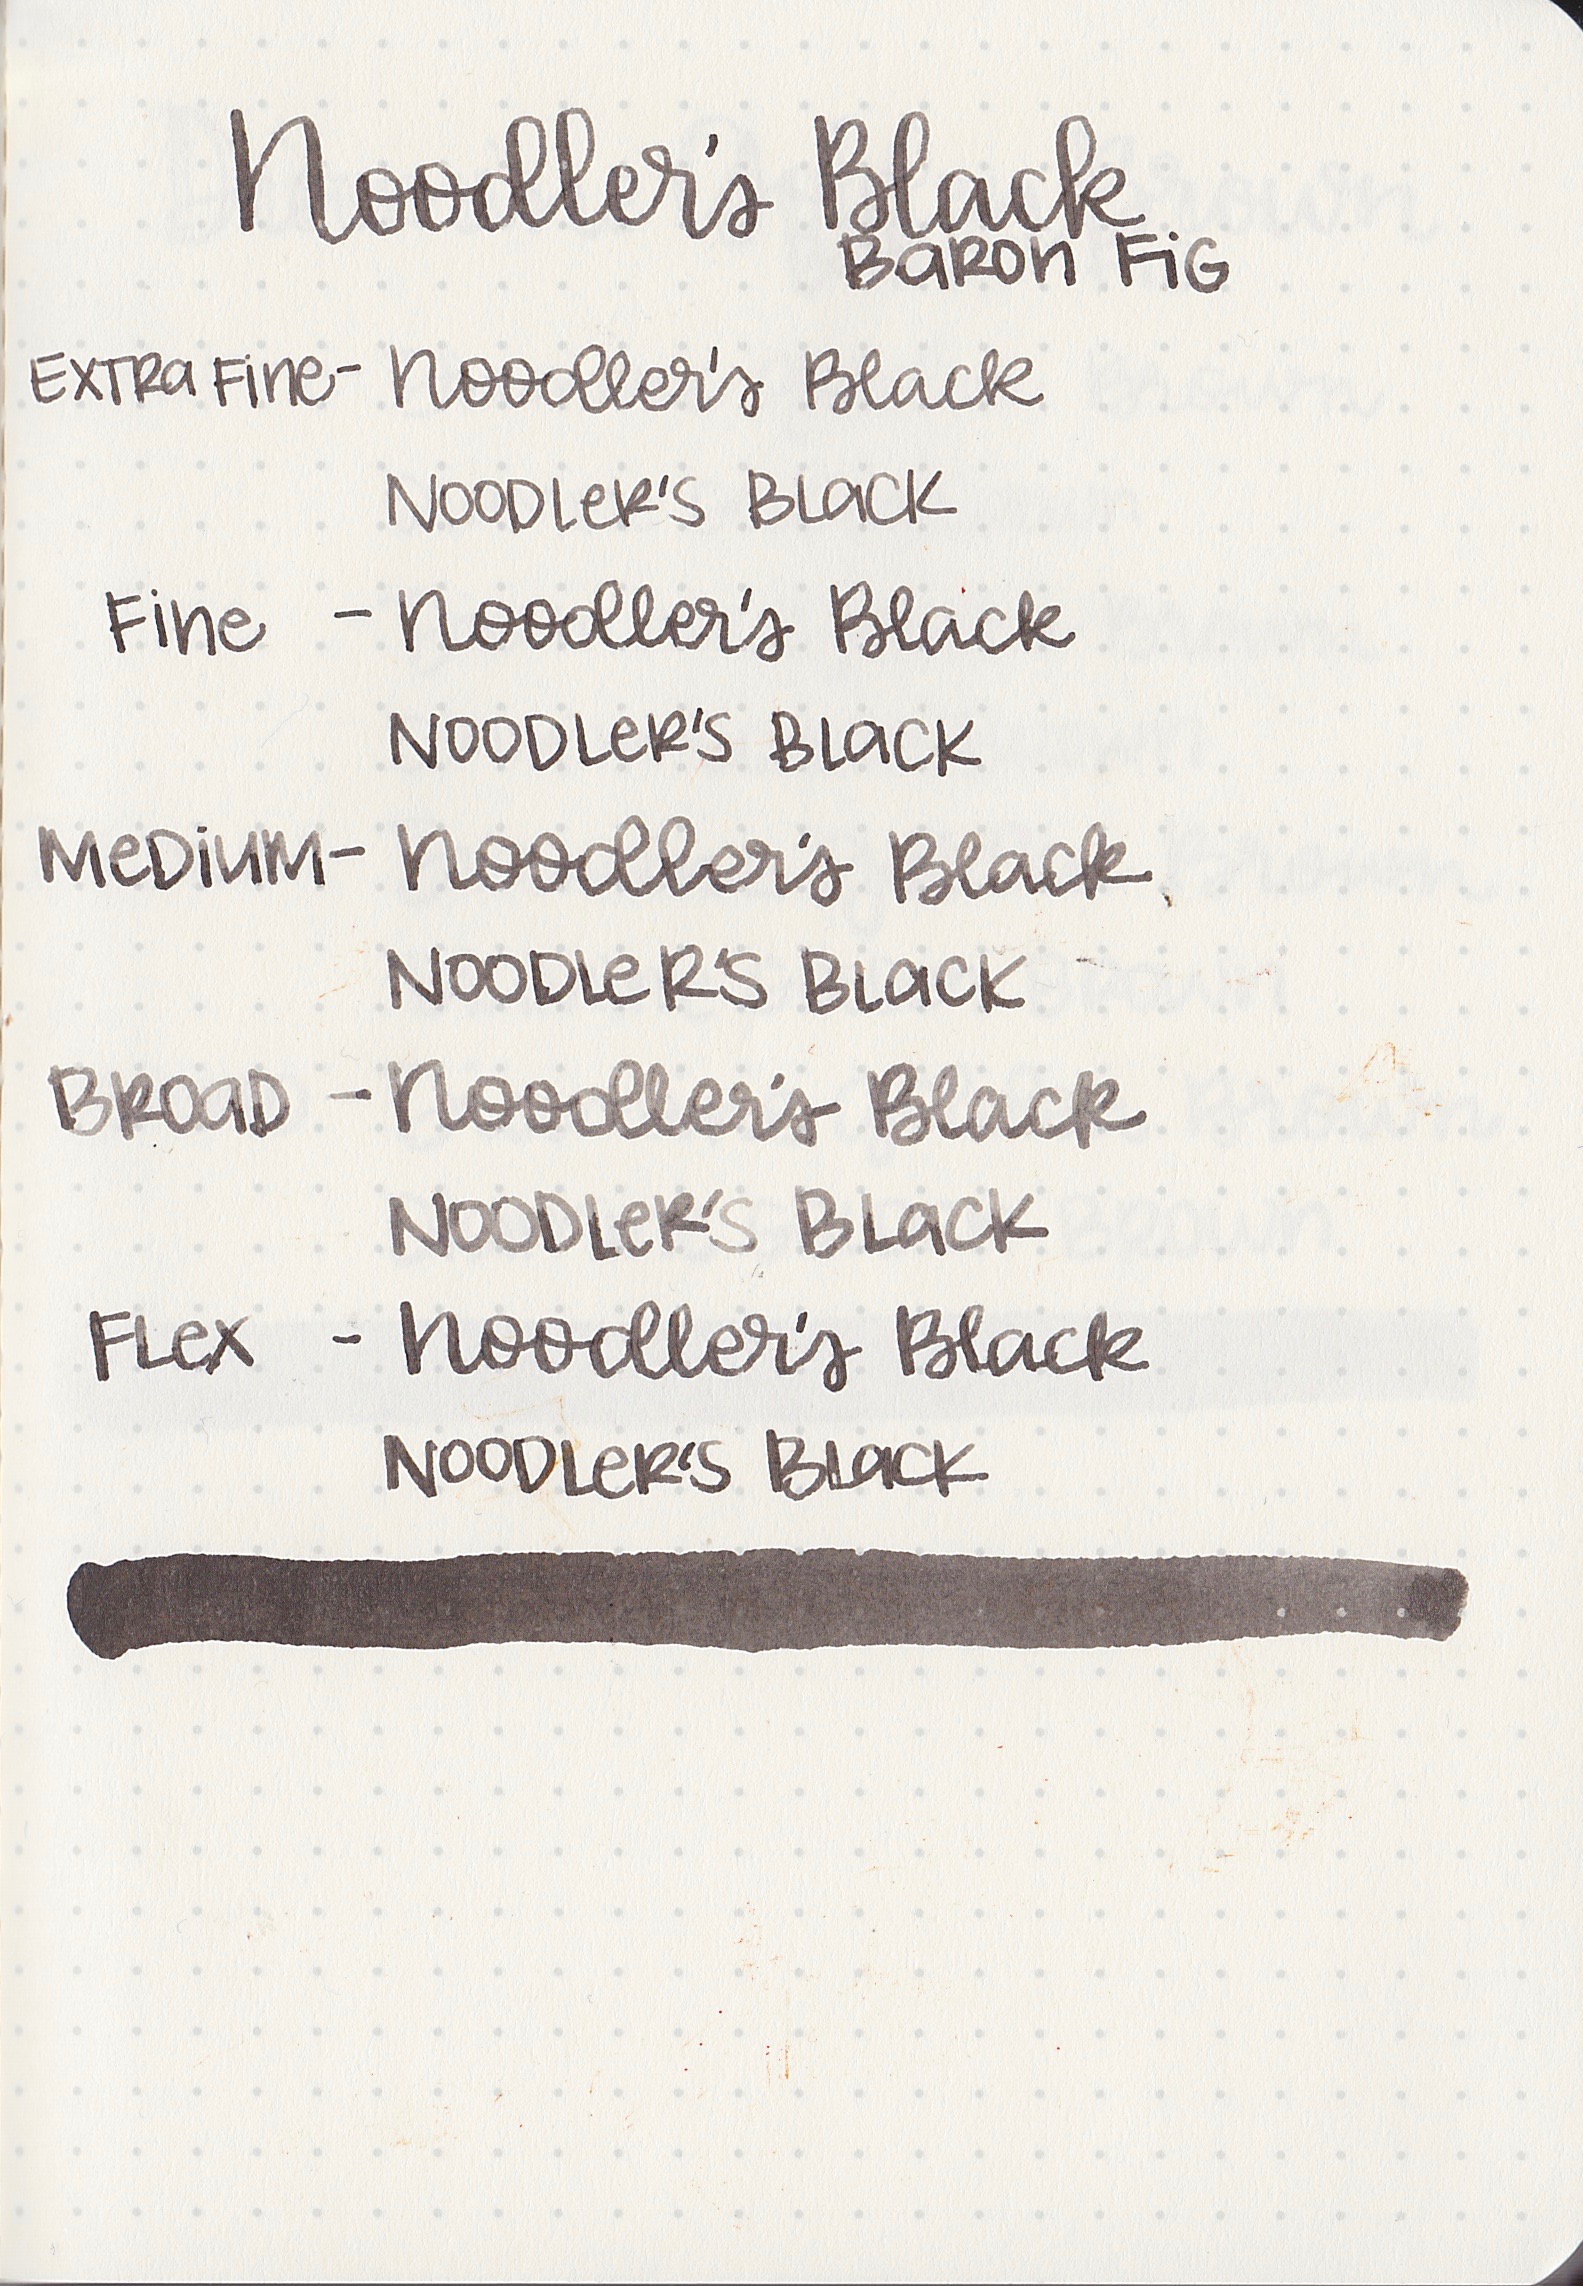 Noodler's Black
Baron Fig
Extra Fine - Noodler's Black
Noodler's Black
Fine - Noodler's Black
Noodler's Black
Medium - Noodler's Black
Noodler's Black
Broad - Noodler's Black
Noodler's Black
Flex - Noodler's Black
Noodler's Black